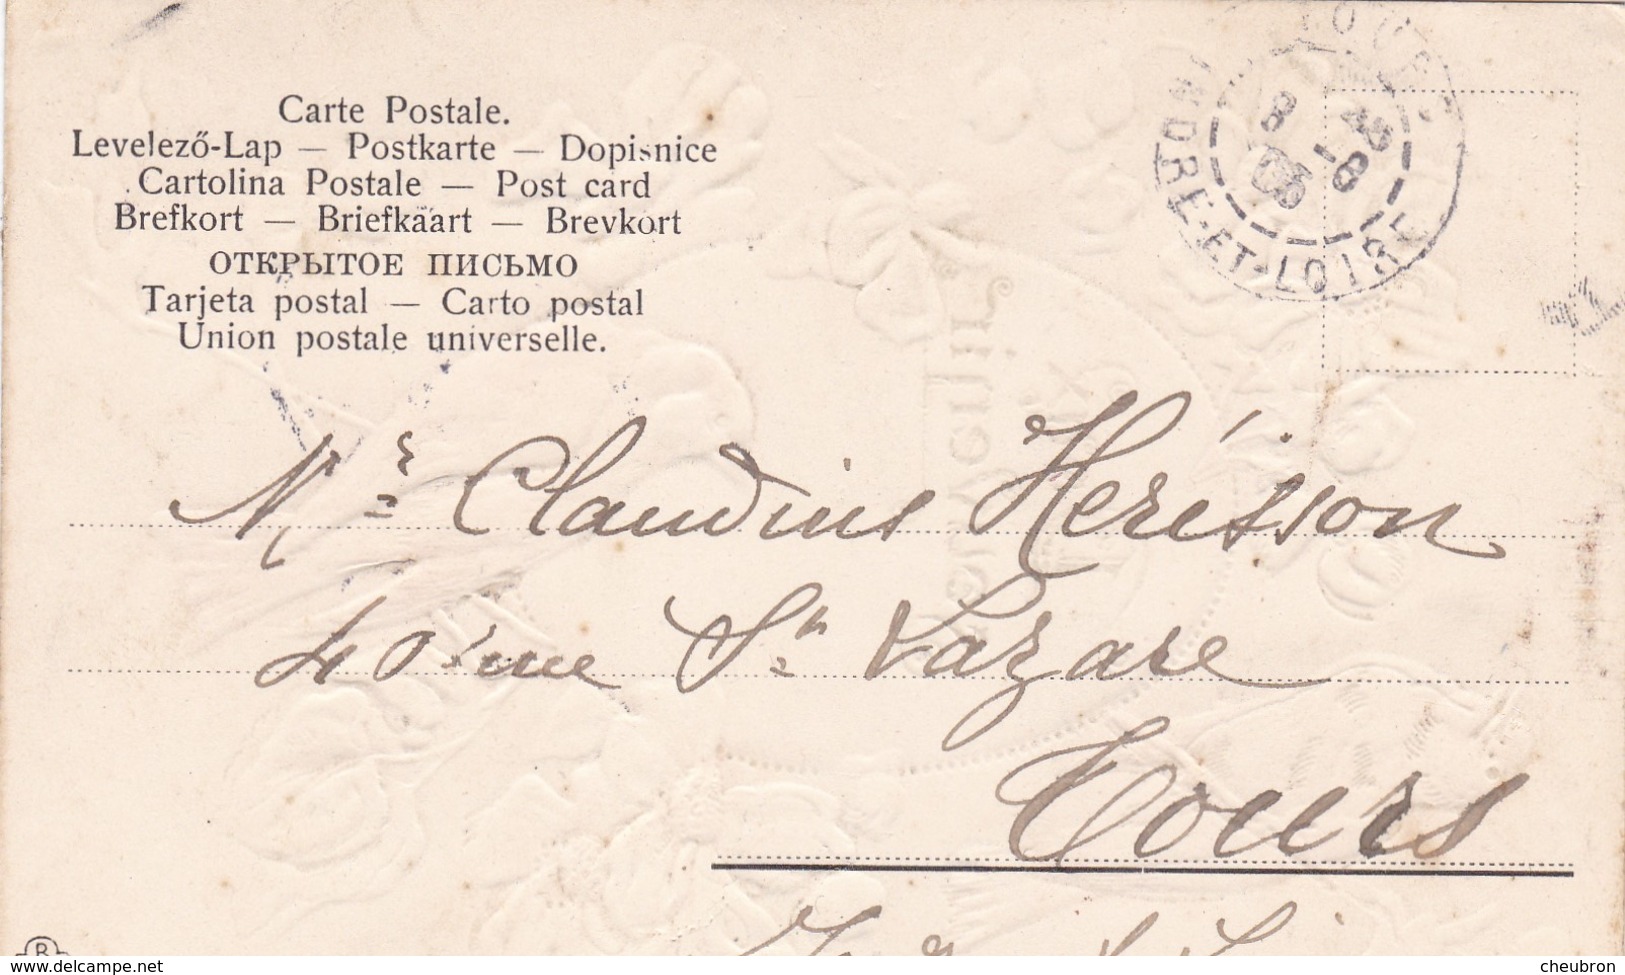 Carte Postale.
Levelező-Lap — Postkarte — Dopisnice
Cartolina Postale — Post card
Brefkort — Briefkaart — Brevkort
ОТКРЫТОЕ ПИСЬМО
Tarjeta postal — Carto postal
Union postale universelle.
INDRE-ET-LOIRE
8 45
8 -8
05
Souvenir
Mr Claudius Herisson
40 rue St Lazare
Tours
B
delcampe.net
cheubron